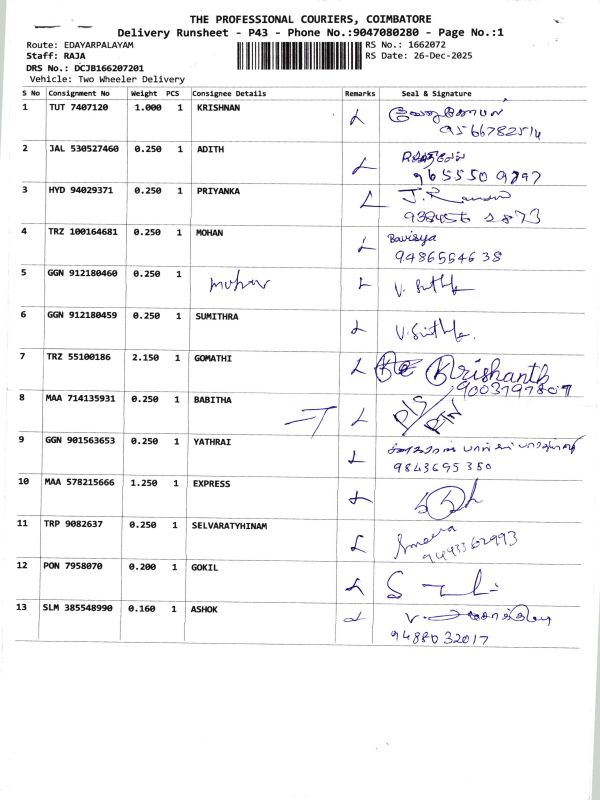 THE PROFESSIONAL COURIERS, COIMBATORE
Delivery Runsheet - P43 - Phone No.:9047080280 - Page No.:1
Route: EDAYARPALAYAM
RS No.: 1662072
Staff: RAJA
RS Date: 26-Dec-2025
DRS No.: DCJB166207201
Vehicle: Two Wheeler Delivery
S No Consignment No Weight PCS Consignee Details Remarks Seal & Signature
1 TUT 7407120 1.000 1 KRISHNAN L
9566782514
2 JAL 530527460 0.250 1 ADITH L
965550 9797
3 HYD 94029371 0.250 1 PRIYANKA L J.R
938456 2873
4 TRZ 100164681 0.250 1 MOHAN L Bavisya
9486554638
5 GGN 912180460 0.250 1 mohan L
6 GGN 912180459 0.250 1 SUMITHRA L
7 TRZ 55100186 2.150 1 GOMATHI L Krishanth
9003797807
8 MAA 714135931 0.250 1 BABITHA L
9 GGN 901563653 0.250 1 YATHRAI L
9843695350
10 MAA 578215666 1.250 1 EXPRESS L
11 TRP 9082637 0.250 1 SELVARATYHINAM L Ameera
9493362993
12 PON 7958070 0.200 1 GOKIL L
13 SLM 385548990 0.160 1 ASHOK L
9488032017